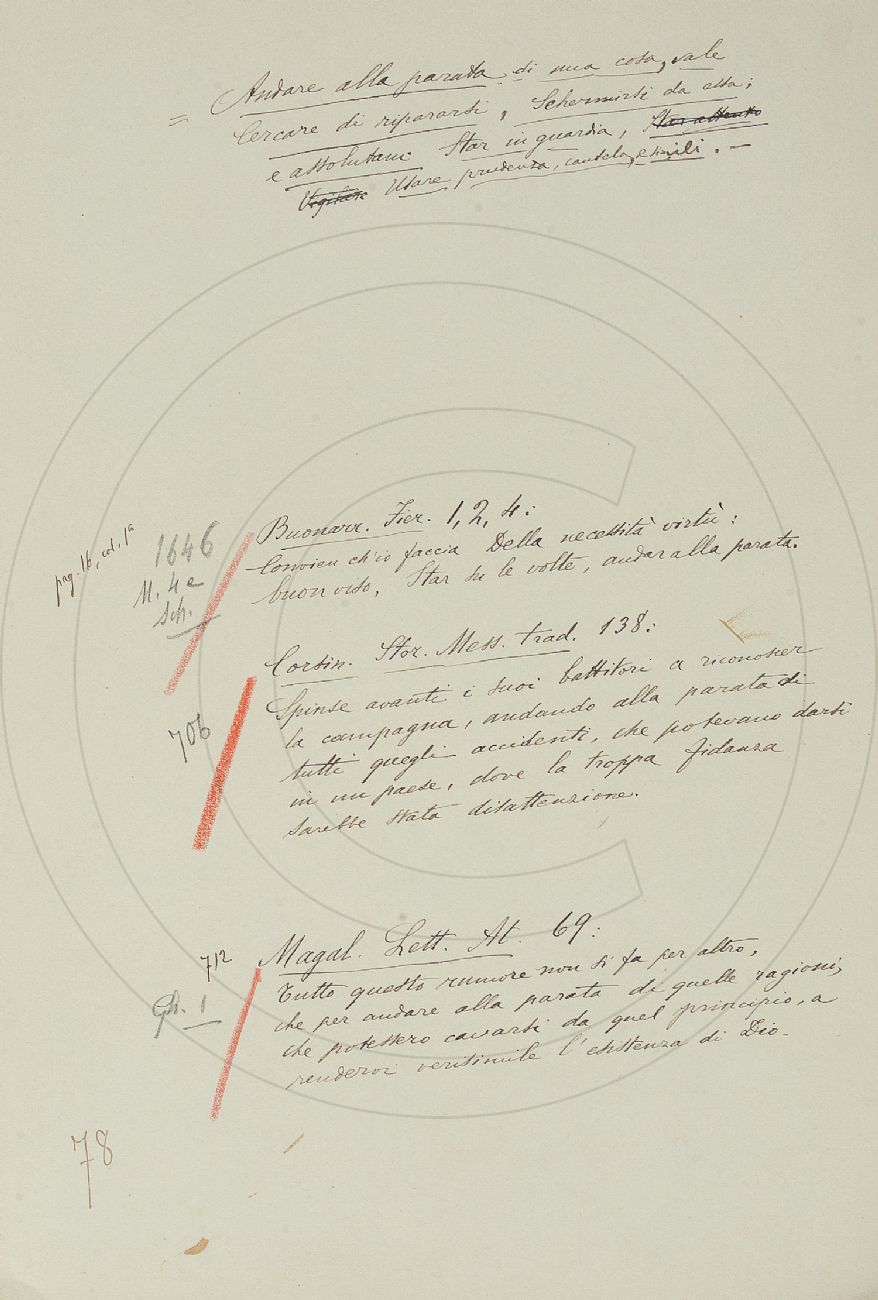 = Andare alla parata di una cosa, vale
Cercare di ripararsi, Schermirsi da essa;
e assolutam. Star in guardia, Star attento
Vigilare Usare prudenza, cautela, e simili. —
Buonarr. Fier. 1, 2, 4:
Convien ch'io faccia Della necessità virtù:
buon viso, Star su le volte, andar alla parata.
pag. 16, col. 1ª
1646
M. 4 e
Sch.
Corsin. Stor. Mess. trad. 138:
Spinse avanti i suoi battitori a riconoscer
la campagna, andando alla parata di
tutti quegli accidenti, che potevano darsi
in un paese, dove la troppa fidanza
sarebbe stata disattenzione.
706
Magal. Lett. At. 69:
Tutto questo rumore non si fa per altro,
che per andare alla parata di quelle ragioni,
che potessero cavarsi da quel principio, a
rendervi verisimile l'esistenza di Dio.
712
Gh. 1
78